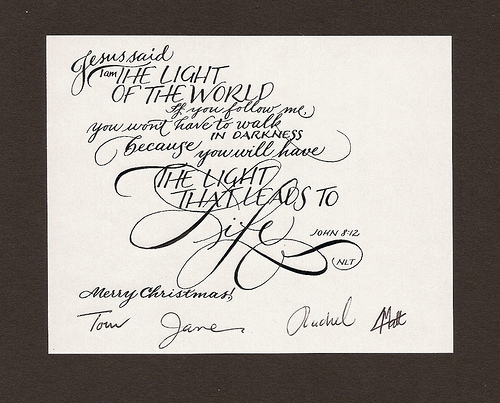 Jesus said
I am THE LIGHT
OF THE WORLD
If you follow me,
you won't have to walk
IN DARKNESS
because you will have
THE LIGHT
THAT LEADS TO
Life
JOHN 8:12
NLT
Merry Christmas!
Tom Jane Rachel Matt